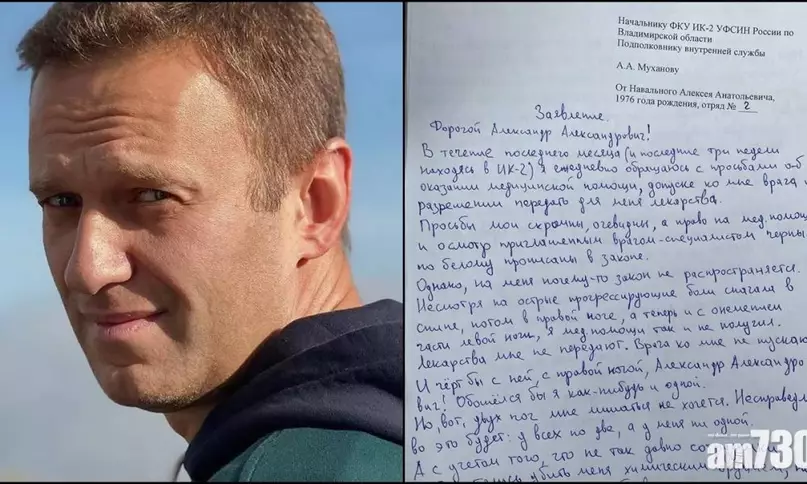 Начальнику ФКУ ИК-2 УФСИН России по
Владимирской области
Подполковнику внутренней службы
А.А. Муханову
От Навального Алексея Анатольевича,
1976 года рождения, отряд № 2
Заявление.
Дорогой Александр Александрович!
В течение последнего месяца (и последние три недели
находясь в ИК-2) я ежедневно обращаюсь с просьбами об
оказании медицинской помощи, допуске ко мне врача и
разрешении передать для меня лекарства.
Просьбы мои скромны, очевидны, а право на мед. помощь
и осмотр приглашенным врачом-специалистом черным
по белому прописаны в законе.
Однако, на меня почему-то закон не распространяется.
Несмотря на острые прогрессирующие боли сначала в
спине, потом в правой ноге, а теперь и с онемением
части левой ноги, я мед. помощи так и не получил.
Лекарства мне не передают. Врача ко мне не пускают
И чёрт бы с ней с правой ногой, Александр Александро
вич! Обошёлся бы я как-нибудь и одной.
Но, вот, двух ног мне лишаться не хочется. Несправедли
во это будет: у всех по две, а у меня ни одной.
А с учетом того, что не так давно
убить меня химическим оружием,
am730